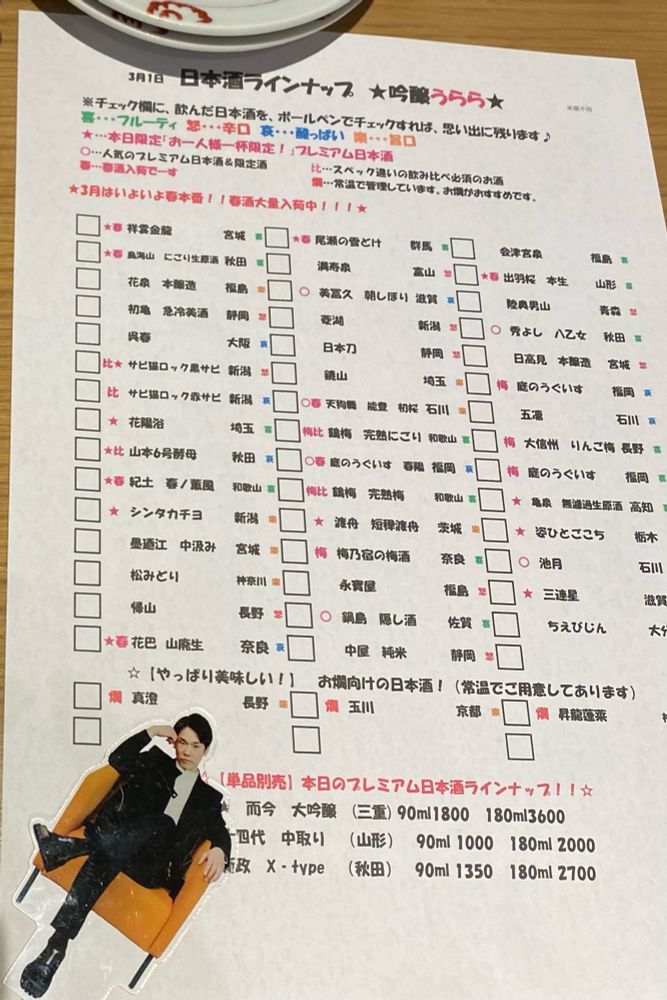 3月1日 日本酒ラインナップ ★吟醸うらら★
※順不同
※チェック欄に、飲んだ日本酒を、ボールペンでチェックすれば、思い出に残ります♪
喜・・・フルーティ 怒・・・辛口 哀・・・酸っぱい 楽・・・旨口
★…本日限定「お一人様一杯限定!」プレミアム日本酒
○…人気のプレミアム日本酒&限定酒 比…スペック違いの飲み比べ必須のお酒
春…春酒入荷でーす 燗…常温で管理しています。お燗がおすすめです。
★3月はいよいよ春本番!!春酒大量入荷中!!!★
★春 祥雲金龍 宮城 喜 ★春 尾瀬の雪どけ 群馬 喜 会津宮泉 福島 喜
★春 鳥海山 にごり生原酒 秋田 喜 満寿泉 富山 怒 ★春 出羽桜 本生 山形 喜
花泉 本醸造 福島 楽 ○ 美冨久 朝しぼり 滋賀 哀 陸奥男山 青森 怒
初亀 急冷美酒 静岡 怒 菱湖 新潟 怒 ○ 秀よし 八乙女 秋田 喜
呉春 大阪 哀 日本刀 静岡 怒 日高見 本醸造 宮城 怒
比★ サビ猫ロック黒サビ 新潟 怒 鏡山 埼玉 楽 梅 庭のうぐいす 福岡 哀
比 サビ猫ロック赤サビ 新潟 哀 ○春 天狗舞 能登 初桜 石川 楽 五凛 石川 哀
★ 花陽浴 埼玉 喜 梅比 鶴梅 完熟にごり 和歌山 喜 梅 大信州 りんご梅 長野 喜
★比 山本6号酵母 秋田 哀 ○春 庭のうぐいす 春陽 福岡 哀 梅 庭のうぐいす 福岡 喜
★春 紀土 春ノ薫風 和歌山 喜 梅比 鶴梅 完熟梅 和歌山 喜 ★ 亀泉 無濾過生原酒 高知
★ シンタカチヨ 新潟 楽 ★ 渡舟 短稈渡舟 茨城 楽 ★ 姿ひとごこち 栃木
墨廼江 中汲み 宮城 楽 梅 梅乃宿の梅酒 奈良 喜 ○ 池月 石川
松みどり 神奈川 楽 永寶屋 福島 怒 ★ 三連星 滋賀
帰山 長野 怒 ○ 鍋島 隠し酒 佐賀 喜 ちえびじん 大分
★春 花巴 山廃生 奈良 哀 中屋 純米 静岡 怒
☆【やっぱり美味しい!】 お燗向けの日本酒!(常温でご用意してあります)
燗 真澄 長野 楽 燗 玉川 京都 楽 燗 昇龍蓬莱
【単品別売】本日のプレミアム日本酒ラインナップ!!☆
而今 大吟醸 (三重) 90ml1800 180ml3600
十四代 中取り (山形) 90ml 1000 180ml 2000
政 X-type (秋田) 90ml 1350 180ml 2700